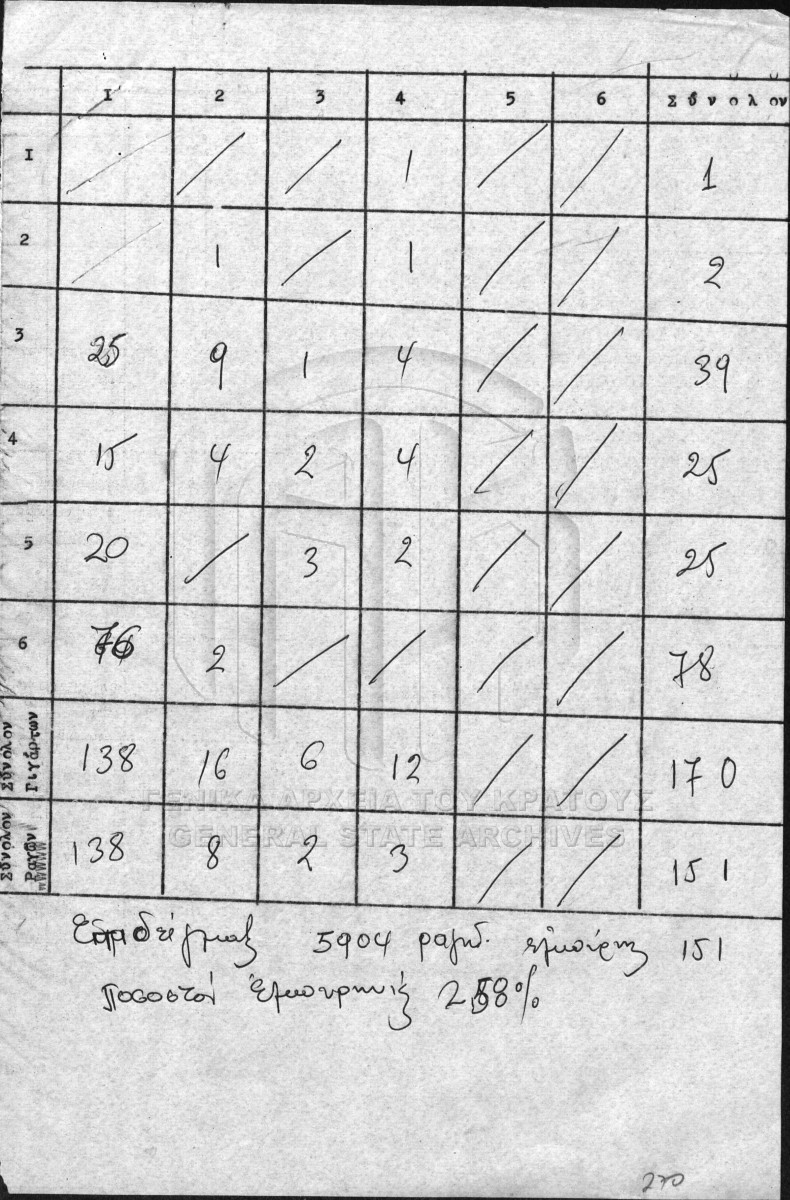 I 2 3 4 5 6 Σύνολον
I / / / 1 / / 1
2 / 1 / 1 / / 2
3 25 9 1 4 / / 39
4 15 4 2 4 / / 25
5 20 / 3 2 / / 25
6 76 2 / / / / 78
Σύνολον Γιγάρτων 138 16 6 12 / / 17 0
Σύνολον Ραγῶν 138 8 2 3 / / 151
5904 151
Ποσοστόν 2,58%
ΓΕΝΙΚΑ ΑΡΧΕΙΑ ΤΟΥ ΚΡΑΤΟΥΣ
GENERAL STATE ARCHIVES
270